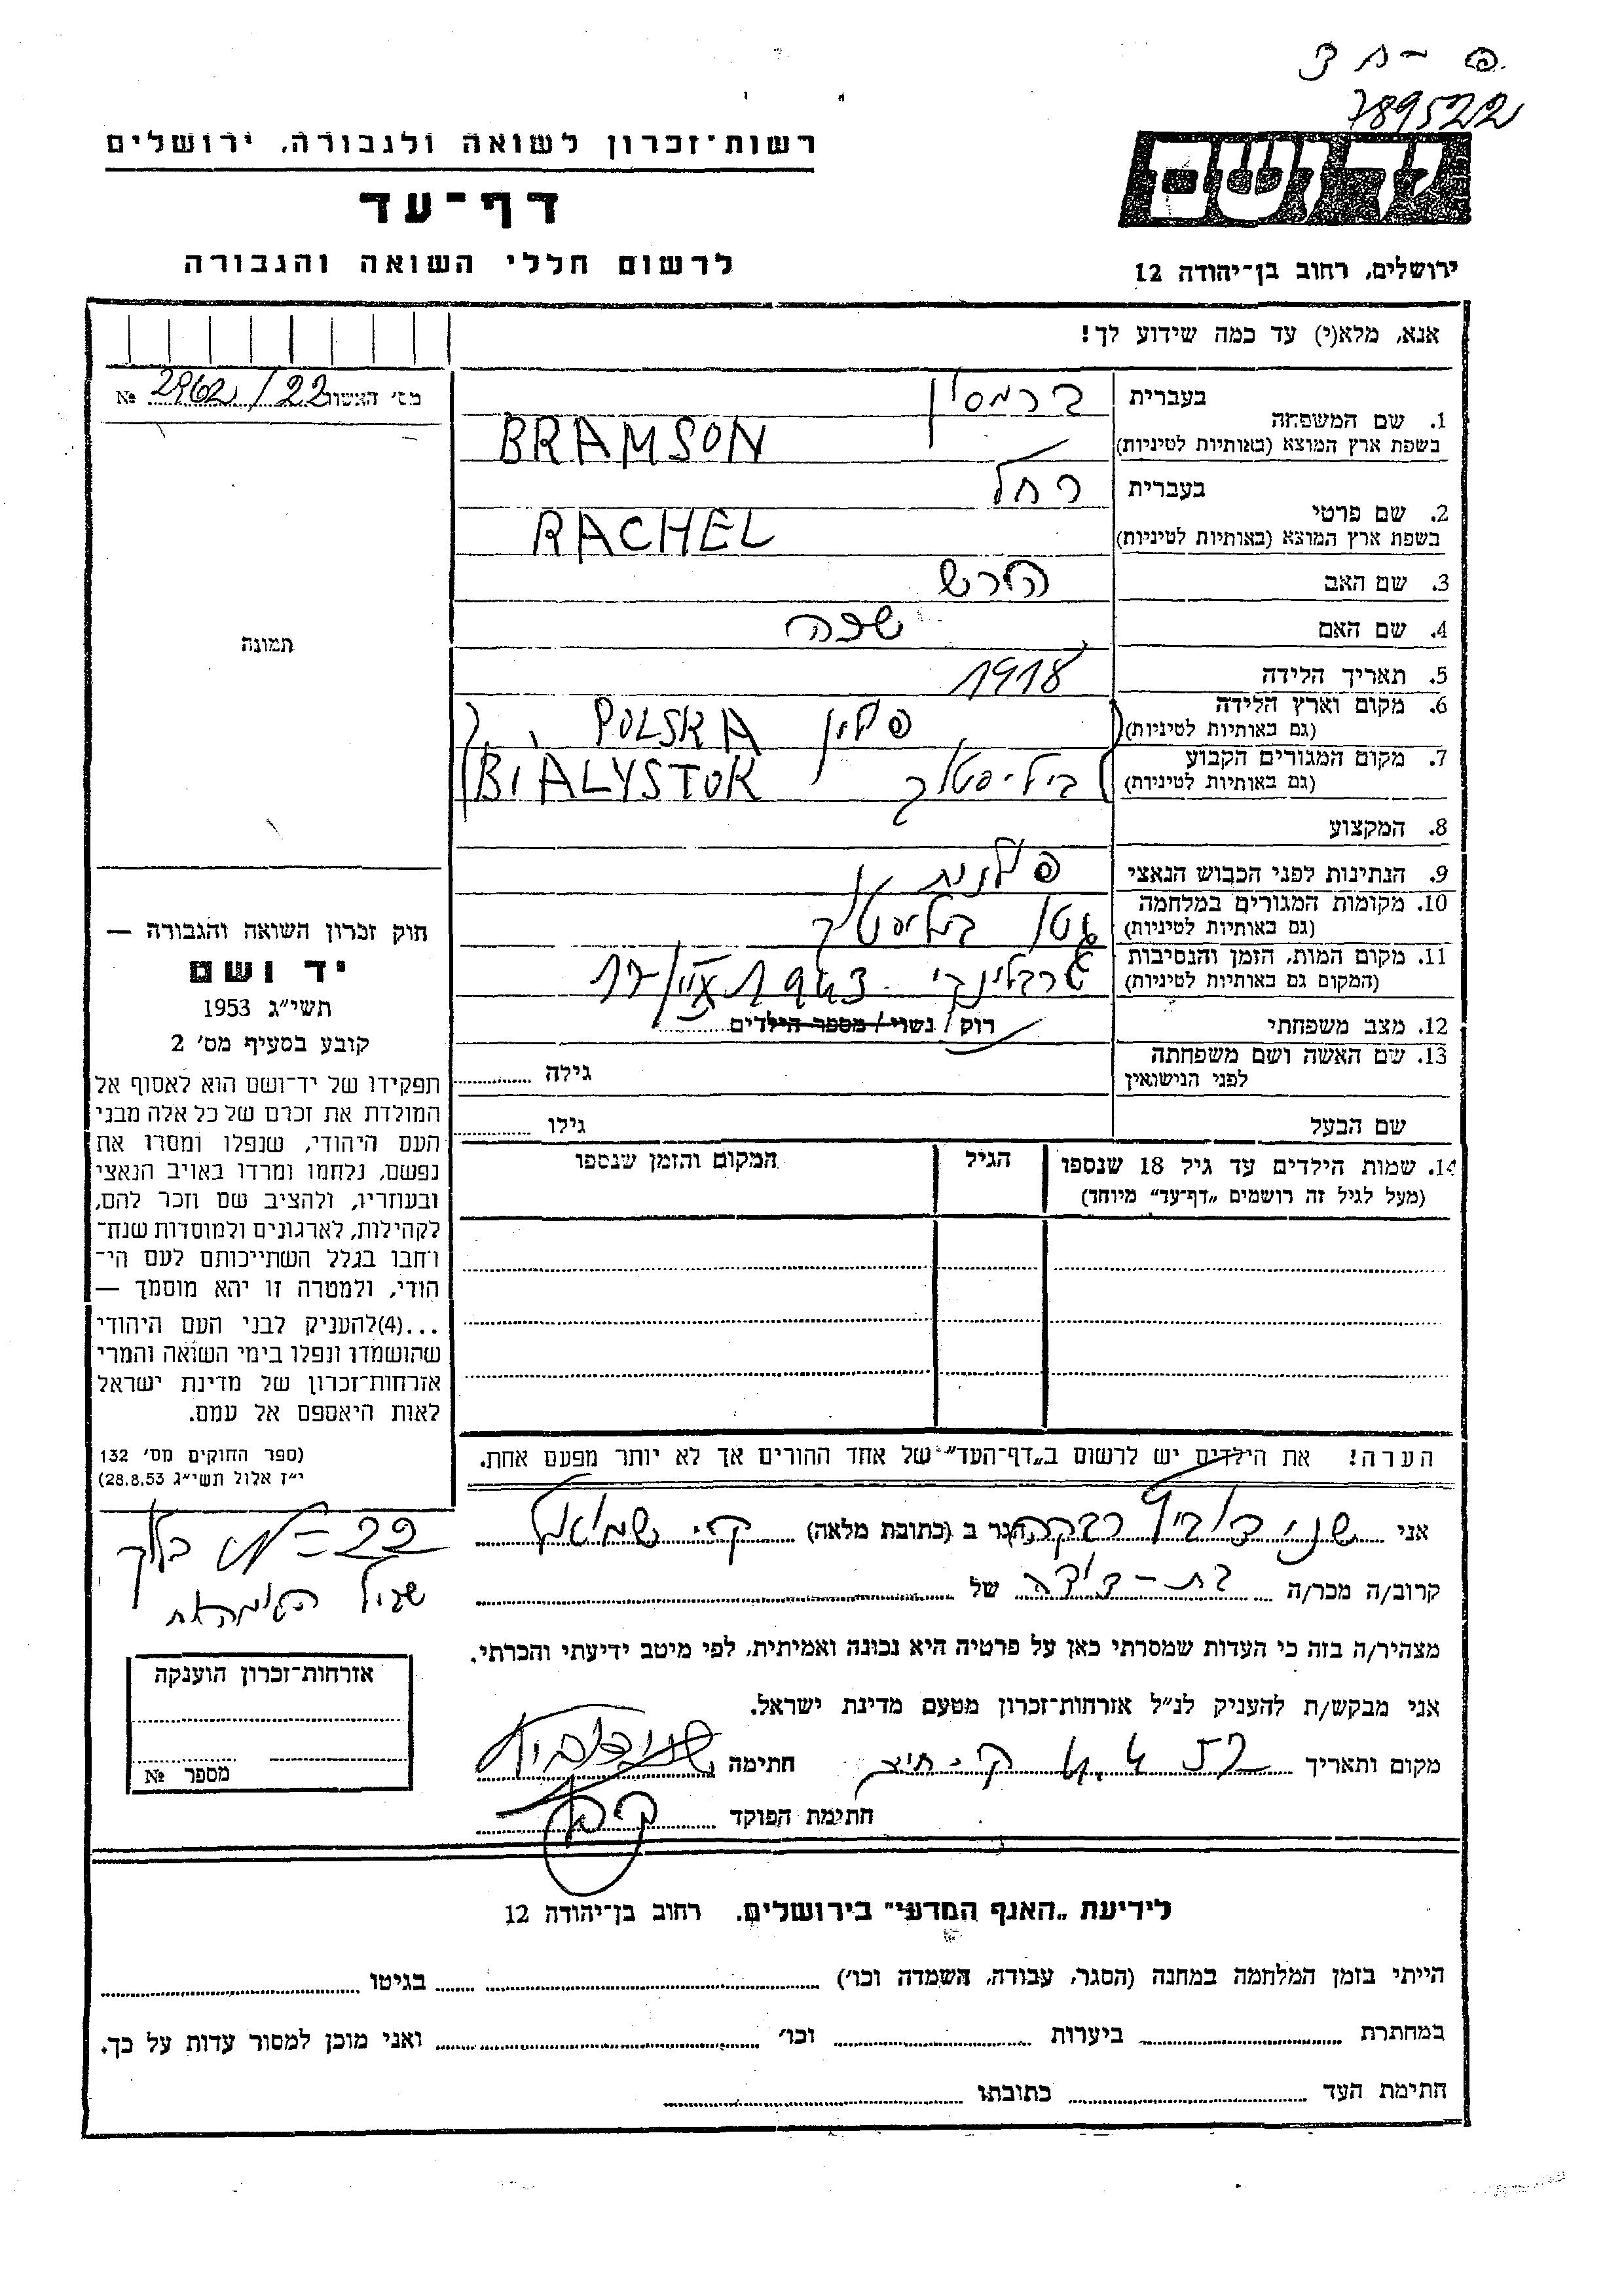 789522
יד ושם
רשות־זכרון לשואה ולגבורה, ירושלים
דף־עד
לרשום חללי השואה והגבורה
ירושלים, רחוב בן־יהודה 12
אנא, מלא(י) עד כמה שידוע לך!
מס׳ האשור 2962/22 №
1. שם המשפחה
בעברית ברמסון
בשפת ארץ המוצא (באותיות לטיניות) BRAMSON
2. שם פרטי
בעברית רחל
בשפת ארץ המוצא (באותיות לטיניות) RACHEL
3. שם האב הירש
4. שם האם שפה
5. תאריך הלידה 1918
6. מקום וארץ הלידה
(גם באותיות לטיניות) פולין POLSKA
7. מקום המגורים הקבוע
(גם באותיות לטיניות) ביליסטוק BIALYSTOK
8. המקצוע
9. הנתינות לפני הכבוש הנאצי פולנית
10. מקומות המגורים במלחמה
(גם באותיות לטיניות) גטו ביליסטוק
11. מקום המות, הזמן והנסיבות
(המקום גם באותיות לטיניות) טרבלינקי 1943
12. מצב משפחתי רווק / נשוי / מספר הילדים
13. שם האשה ושם משפחתה
לפני הנישואין גילה
שם הבעל גילו
14. שמות הילדים עד גיל 18 שנספו
(מעל לגיל זה רושמים „דף־עד״ מיוחד)
הגיל
המקום והזמן שנספו
תמונה
חוק זכרון השואה והגבורה —
יד ושם
תשי״ג 1953
קובע בסעיף מס׳ 2
תפקידו של יד־ושם הוא לאסוף אל
המולדת את זכרם של כל אלה מבני
העם היהודי, שנפלו ומסרו את
נפשם, נלחמו ומרדו באויב הנאצי
ובעוזריו, ולהציב שם וזכר להם,
לקהילות, לארגונים ולמוסדות שנח־
רבו בגלל השתייכותם לעם הי־
הודי, ולמטרה זו יהא מוסמך —
...(4)להעניק לבני העם היהודי
שהושמדו ונפלו בימי השואה והמרי
אזרחות־זכרון של מדינת ישראל
לאות היאספם אל עמם.
(ספר החוקים מס׳ 132
י״ז אלול תשי״ג 28.8.53)
הערה! את הילדים יש לרשום ב„דף־העד״ של אחד ההורים אך לא יותר מפעם אחת.
אני רבקה הגר ב (כתובת מלאה) ק. שמואל
קרוב/ה מכר/ה בת־דודה של
מצהיר/ה בזה כי העדות שמסרתי כאן על פרטיה היא נכונה ואמיתית, לפי מיטב ידיעתי והכרתי.
אני מבקש/ת להעניק לנ״ל אזרחות־זכרון מטעם מדינת ישראל.
מקום ותאריך חתימה
חתימת הפוקד
אזרחות־זכרון הוענקה
מספר №
לידיעת „האגף המדעי״ בירושלים, רחוב בן־יהודה 12
הייתי בזמן המלחמה במחנה (הסגר, עבודה, השמדה וכו׳) בגיטו
במחתרת ביערות וכו׳ ואני מוכן למסור עדות על כך.
חתימת העד כתובתו